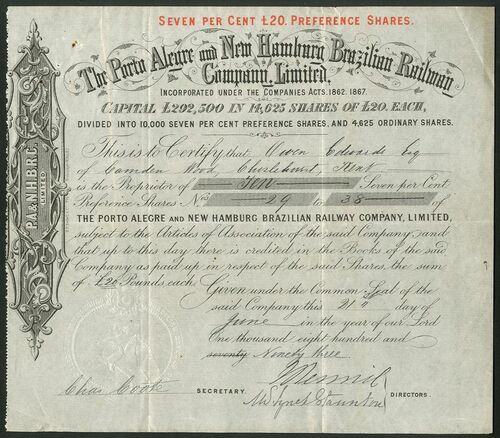 SEVEN PER CENT £20. PREFERENCE SHARES.
The Porto Alegre and New Hamburg Brazilian Railway
Company, Limited,
INCORPORATED UNDER THE COMPANIES ACTS, 1862. 1867.
CAPITAL £292,500 IN 14,625 SHARES OF £20. EACH,
DIVIDED INTO 10,000 SEVEN PER CENT PREFERENCE SHARES, AND 4,625 ORDINARY SHARES.
This is to Certify that Owen Edwards Esq
of Camden Wood, Chislehurst, Kent
is the Proprietor of Ten Seven per Cent
Preference Shares Nos 29 to 38 of
THE PORTO ALEGRE AND NEW HAMBURG BRAZILIAN RAILWAY COMPANY, LIMITED,
subject to the Articles of Association of the said Company, and
that up to this day there is credited in the Books of the said
Company as paid up in respect of the said Shares, the sum
of £20 Pounds each. Given under the Common Seal of the
said Company this 21st day of
June in the year of our Lord
One thousand eight hundred and
seventy Ninety three
Chas Coote SECRETARY.
DIRECTORS.
P.A.& N.H.B.R.C.
LIMITED